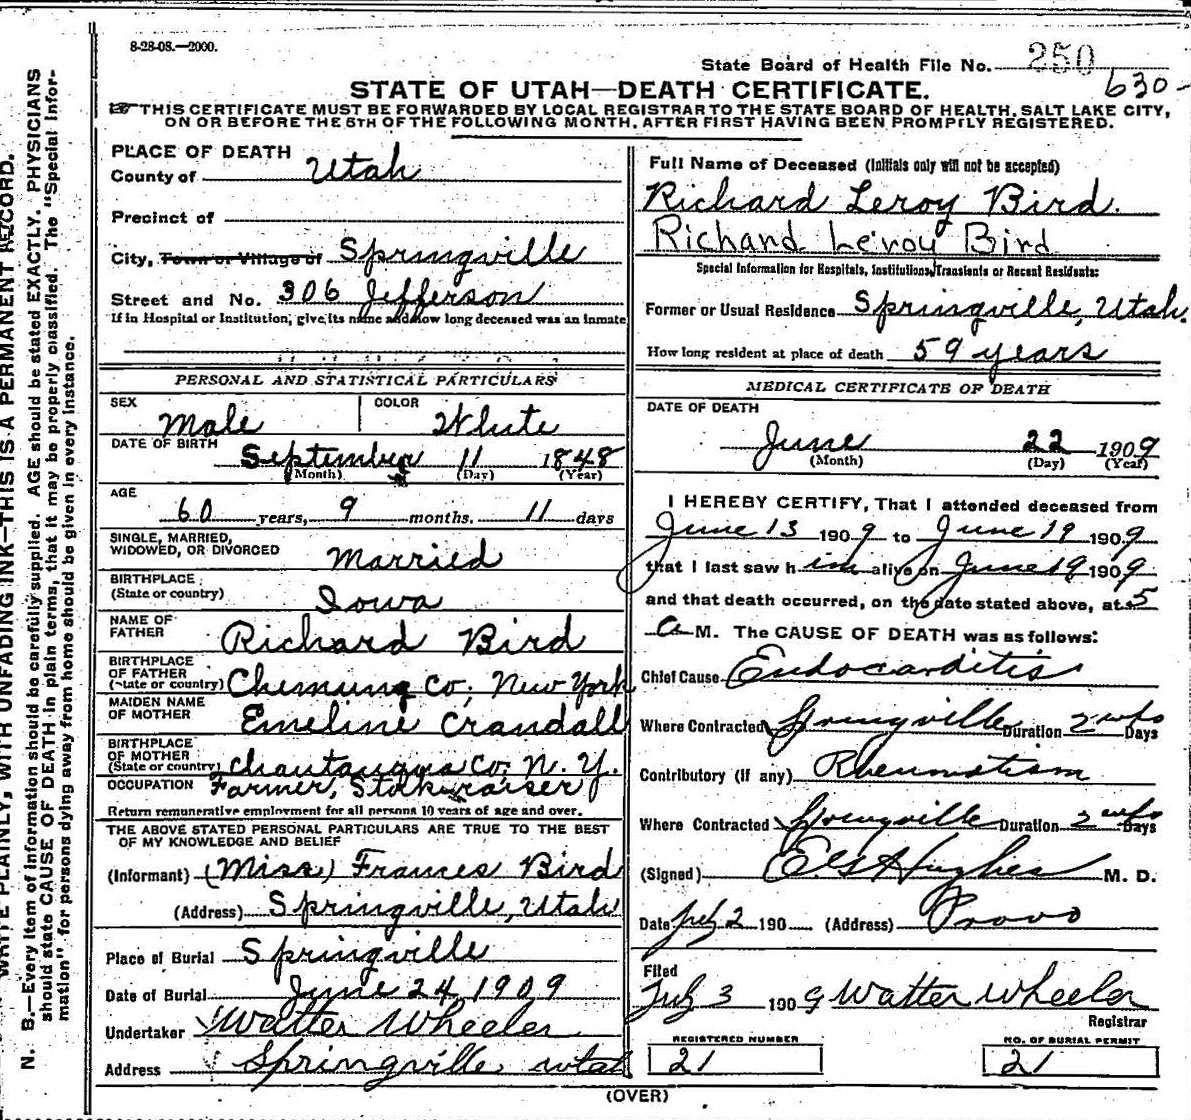 8-28-08.—2000.
State Board of Health File No. 250
630-
STATE OF UTAH—DEATH CERTIFICATE.
THIS CERTIFICATE MUST BE FORWARDED BY LOCAL REGISTRAR TO THE STATE BOARD OF HEALTH, SALT LAKE CITY,
ON OR BEFORE THE 5TH OF THE FOLLOWING MONTH, AFTER FIRST HAVING BEEN PROMPTLY REGISTERED.
WRITE PLAINLY, WITH UNFADING INK—THIS IS A PERMANENT RECORD.
N. B.—Every item of information should be carefully supplied. AGE should be stated EXACTLY. PHYSICIANS
should state CAUSE OF DEATH in plain terms, that it may be properly classified. The "Special Infor-
mation" for persons dying away from home should be given in every instance.
PLACE OF DEATH
County of Utah
Precinct of
City, Town or Village of Springville
Street and No. 306 Jefferson
If in Hospital or Institution, give its name and how long deceased was an inmate
PERSONAL AND STATISTICAL PARTICULARS
SEX Male COLOR White
DATE OF BIRTH September 11 1848
(Month) (Day) (Year)
AGE
60 years, 9 months. 11 days
SINGLE, MARRIED,
WIDOWED, OR DIVORCED Married
BIRTHPLACE
(State or country) Iowa
NAME OF
FATHER Richard Bird
BIRTHPLACE
OF FATHER
(State or country) Chemung Co, New York
MAIDEN NAME
OF MOTHER Emeline Crandall
BIRTHPLACE
OF MOTHER
(State or country) Chautauqua Co, N. Y.
OCCUPATION Farmer, Stockraiser
Return remunerative employment for all persons 10 years of age and over.
THE ABOVE STATED PERSONAL PARTICULARS ARE TRUE TO THE BEST
OF MY KNOWLEDGE AND BELIEF
(Informant) (Miss) Frances Bird
(Address) Springville, Utah
Place of Burial Springville
Date of Burial June 24, 1909
Undertaker Walter Wheeler
Address Springville utah
Full Name of Deceased (Initials only will not be accepted)
Richard Leroy Bird.
Richard Leroy Bird
Special Information for Hospitals, Institutions, Transients or Recent Residents:
Former or Usual Residence Springville, Utah.
How long resident at place of death 59 years
MEDICAL CERTIFICATE OF DEATH
DATE OF DEATH
June 22 1909
(Month) (Day) (Year)
I HEREBY CERTIFY, That I attended deceased from
June 13 1909 to June 19 1909
that I last saw him alive on June 19 1909
and that death occurred, on the date stated above, at 5
A M. The CAUSE OF DEATH was as follows:
Chief Cause Endocarditis
Where Contracted Springville Duration 2 wks Days
Contributory (if any) Rheumatism
Where Contracted Springville Duration 2 wks Days
(Signed) E G Hughes M. D.
Date July 2 190 (Address) Provo
Filed
July 3 1909 Walter Wheeler
Registrar
REGISTERED NUMBER
21
NO. OF BURIAL PERMIT
21
(OVER)